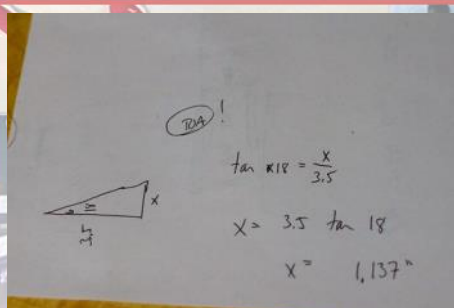 TOA !
tan 18 = x/3.5
x
x = 3.5 tan 18
x = 1.137"